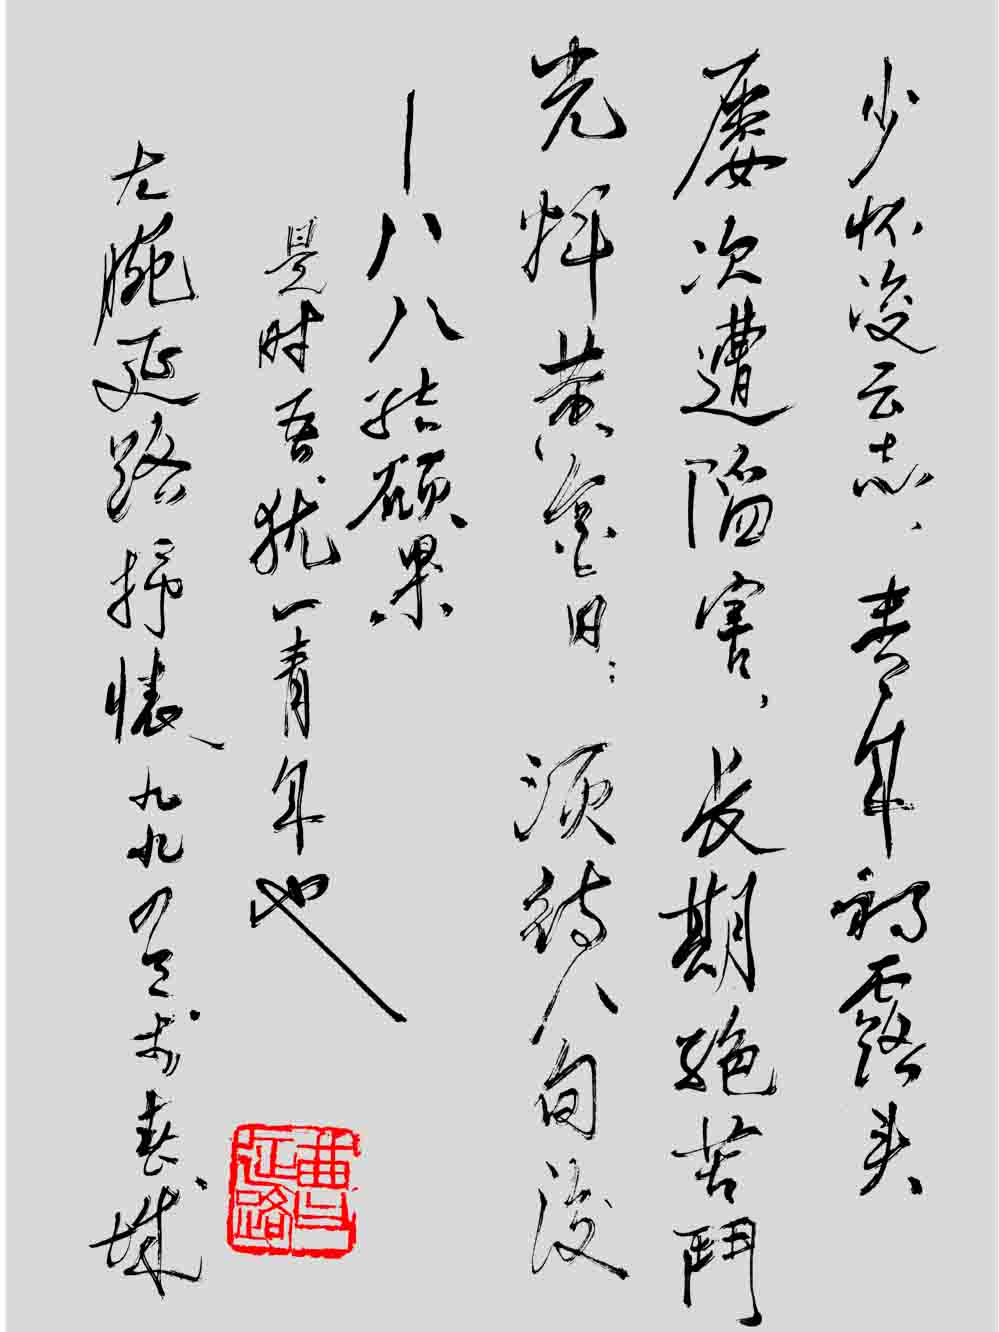 少怀凌云志，青年初露头
屡次遭陷害，长期绝苦鬥
光辉黄金日：须待八旬后
一八八结硕果
是时吾犹一青年也
左腕延路抒懷九九の元于春城
曲延路